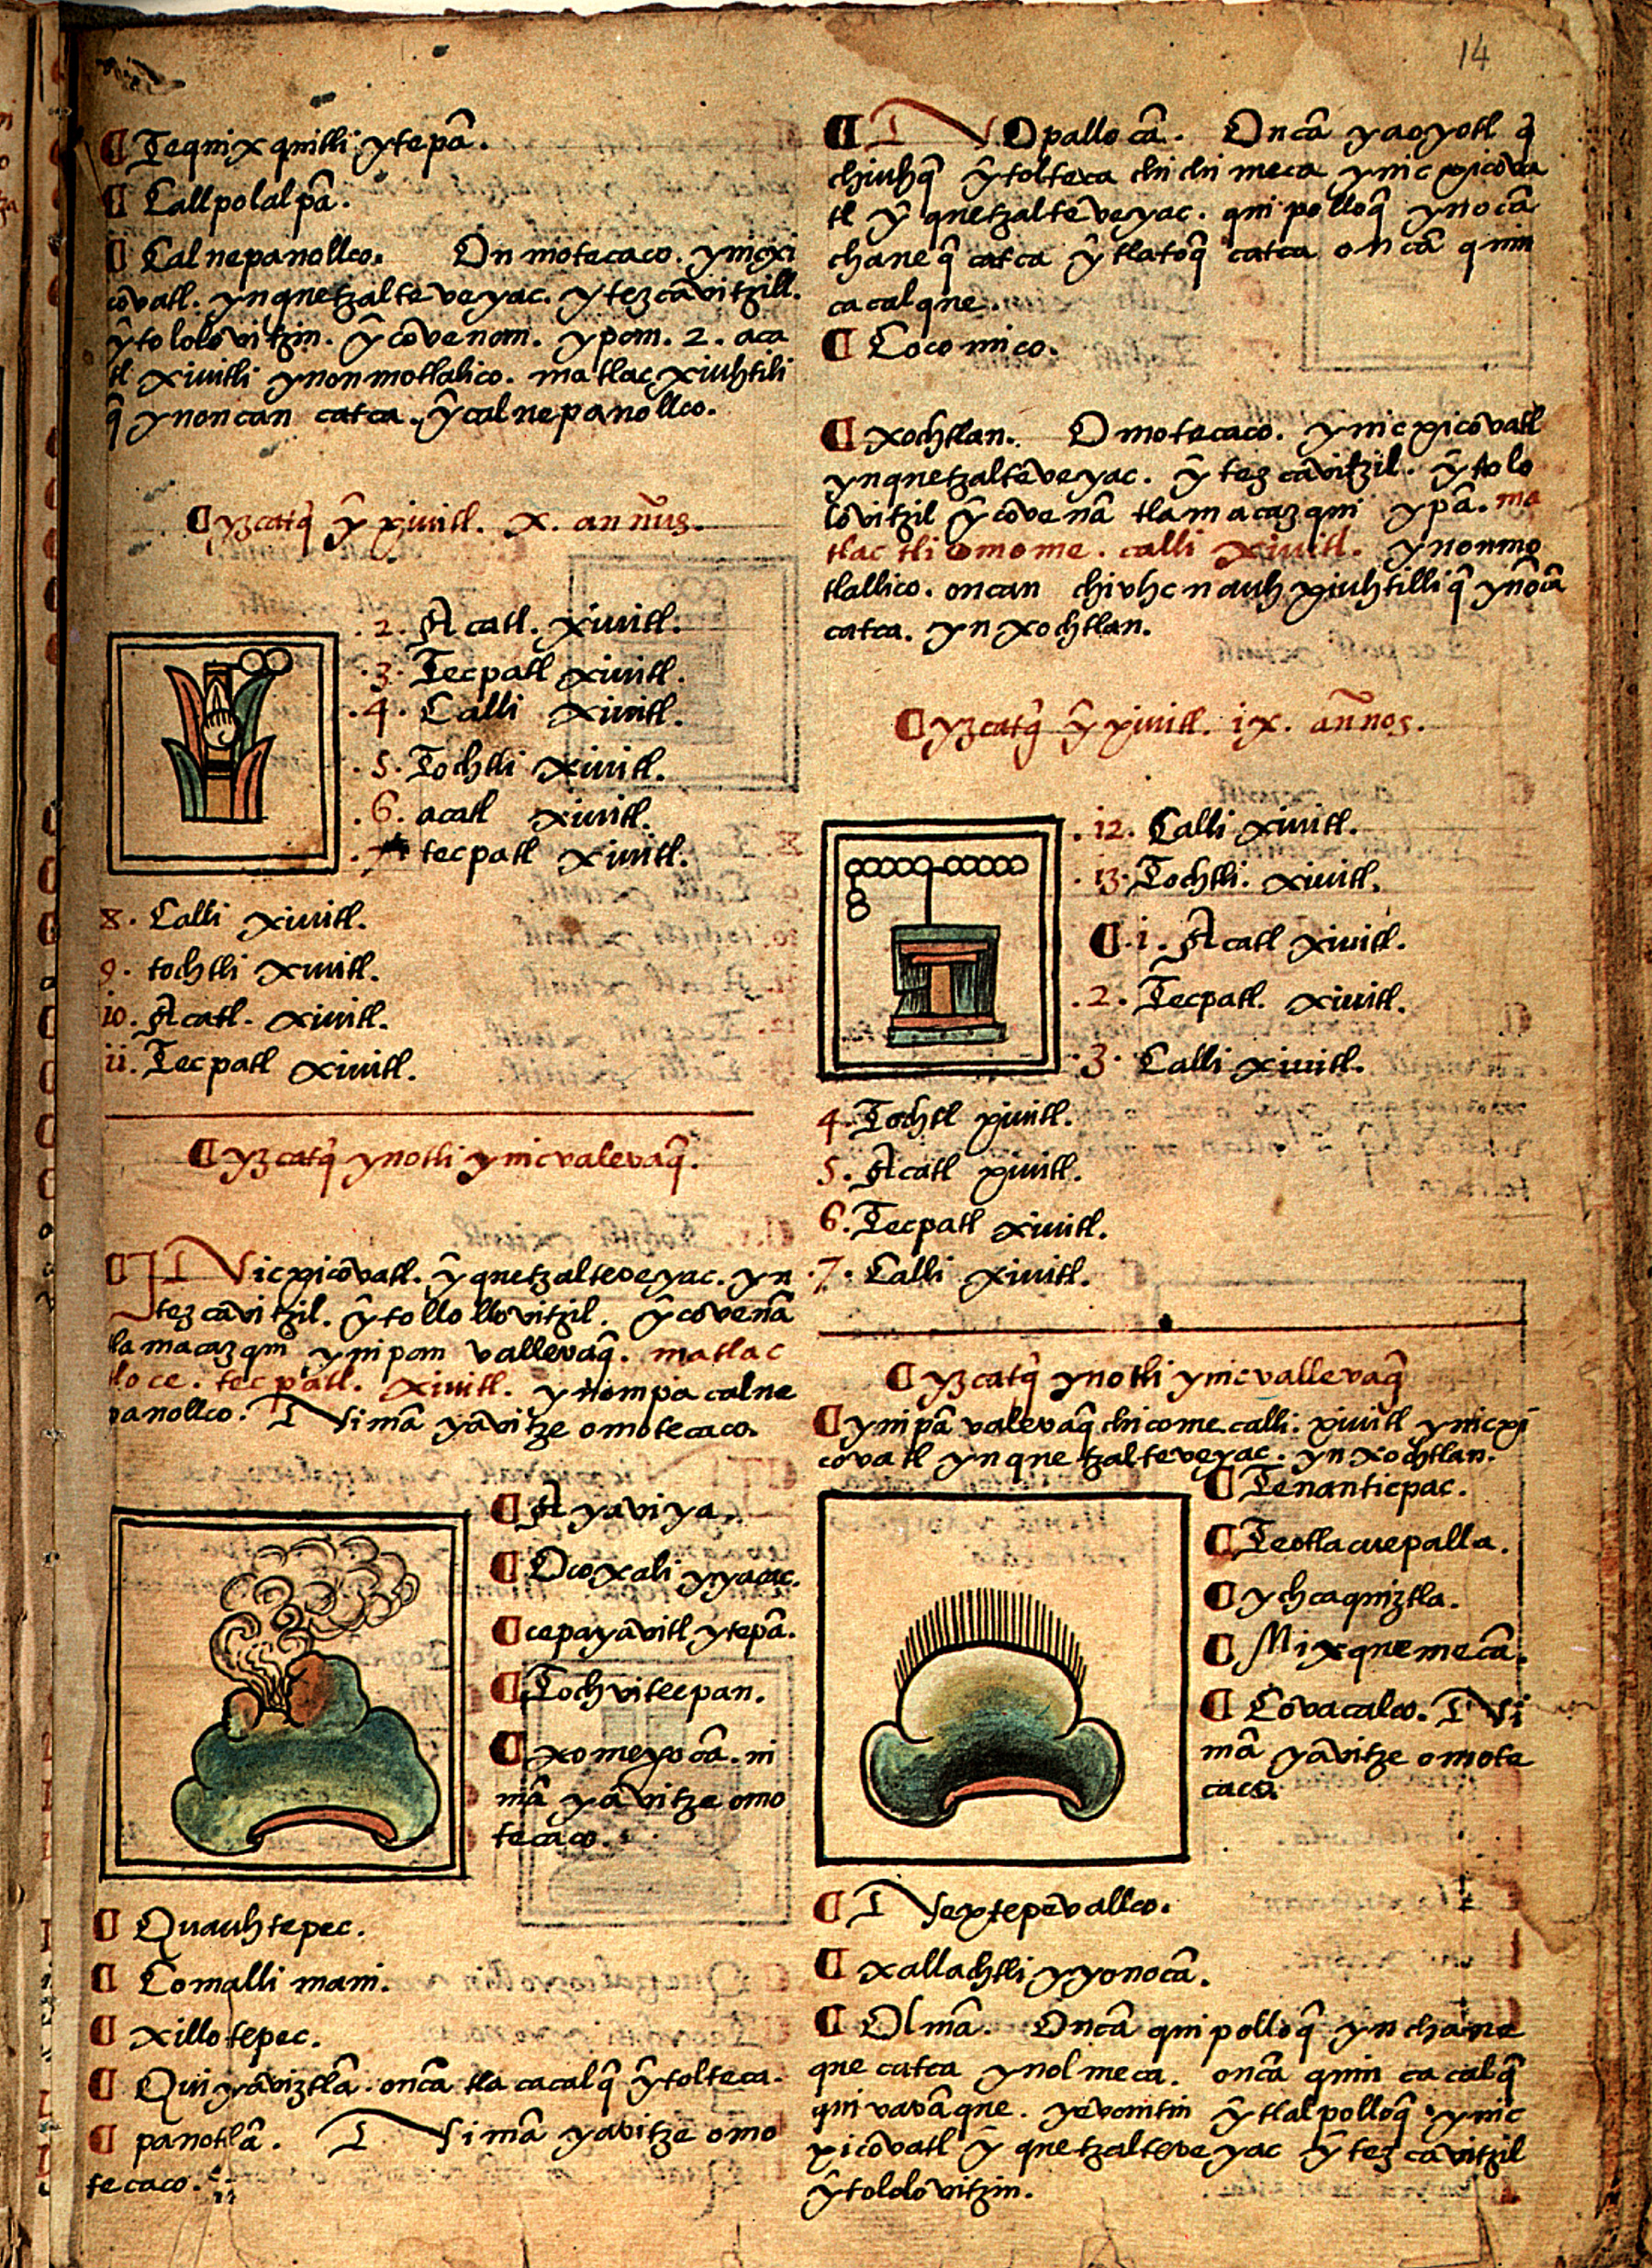 14
¶ Tequixquitli ytepā.
¶ Callpolalpā.
¶ Calnepanollco. On motecaco. ynicxi
cōvatl. ynquetzalteveyac. ytezcāvitzill.
ȳtololōvitzin. ȳcōvenam. ypam. 2. aca
tl xiuitli ynonmotlalico. matlac xiuhtili
q̄ ynoncan catca. ȳcalnepanollco.
¶ yzcatq̄ ȳ xiuitl. x. annūs.
.2. Acatl. xiuitl.
.3. Tecpatl xiuitl.
.4. Calli xiuitl.
.5. Tochtli xiuitl.
.6. acatl xiuitl.
.7. tecpatl xiuitl.
8. Calli xiuitl.
9. tochtli xiuitl.
io. Acatl. xiuitl.
ii. Tecpatl xiuitl.
¶ yzcatq̄ ynotli ynicvalevaq̄.
¶ INicxicōvatl. ȳquetzalteveyac. yn
tezcāvitzil. ȳtollollōvitzil. ȳcovenā
tlamacazqui ynipam vallevaq̄. matlac
tloce. tecpatl. xiuitl. ynompa calne
panollco. Nimā yāvitze omotecaco.
¶ Ayaviya.
¶ Ocoxali yyacac.
¶ cepayāvitl ytepā.
¶ Tochvitecpan.
¶ xomeyocā. ni
mā yāvitze omo
tecaco.
¶ Quauhtepec.
¶ Comalli mani.
¶ xillotepec.
¶ Quiyāviztlā. oncā tlacacalq̄ ȳtolteca.
¶ panotlā. Nimā yavitze omo
tecaco.
¶ Nopallocā. Oncā yaoyotl q̄
chiuhq̄ ȳtolteca chichimeca ynicxicōva
tl ȳ quetzalteveyac. quipolloq̄ ynocā
chaneq̄ catca ȳtlatoq̄ catca oncā quin
cacalque.
¶ Coco mico.
¶ xochtlan. Omotecaco. ynicxicōvatl
ynquetzaltēveyac. ȳ tezcāvitzil. ȳtolo
lōvitzil ȳcōvenā tlamacazqui ypā. ma
tlactli omome. calli xiuitl. ynonmo
tlallico. oncan chivhcnauh xiuhtilliq̄ ynōcā
catca. yn xochtlan.
¶ yzcatq̄ ȳ xiuitl. ix. an̄nos.
.i2. Calli xiuitl.
.i3. Tochtli. xiuitl.
¶ .i. Acatl xiuitl.
.2. Tecpatl. xiuitl.
.3. Calli xiuitl.
4. Tochtl xiuitl.
5. Acatl xiuitl.
6. Tecpatl xiuitl.
.7. Calli xiuitl.
¶ yzcatq̄ ynotli ynicvallevaq̄
¶ ynipā valevaq̄ chicome. calli. xiuitl ynicxi
covatl ynquetzalteveyac. yn xochtlan.
¶ Tenanticpac.
¶ Teotlacuepalla.
¶ ychcaquiztla.
¶ Mixquemecā.
¶ Cōvacalco. Ni
mā yāvitze omote
caco.
¶ Nextepēvallco.
¶ xallachtli yyonocā.
¶ Olmā. Oncā quipolloq̄ ynchane
que catca ynolmeca. oncā quin cacalq̄
quivavāque. yevantin ȳtlalpolloq̄ ynic
xicōvatl ȳ quetzalteveyac ȳtezcāvitzil
ȳtololōvitzin.